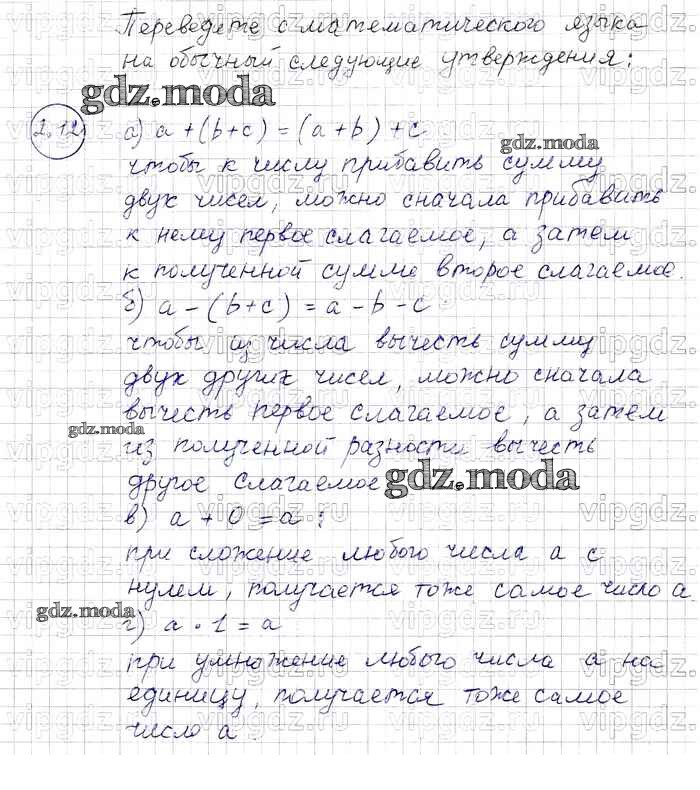 Переведете с математического языка
на обычный следующие утверждения:
gdz.moda
2.12
а) a + (b + c) = (a + b) + c
чтобы к числу прибавить сумму
двух чисел, можно сначала прибавить
к нему первое слагаемое, а затем
к полученной сумме второе слагаемое.
б) a - (b + c) = a - b - c
чтобы из числа вычесть сумму
двух других чисел, можно сначала
вычесть первое слагаемое, а затем
gdz.moda
из полученной разности вычесть
другое слагаемое
gdz.moda
в) a + 0 = a :
при сложение любого числа a с
нулем, получается тоже самое число a.
gdz.moda
г) a · 1 = a
при умножение любого числа a на
единицу, получается тоже самое
число a.